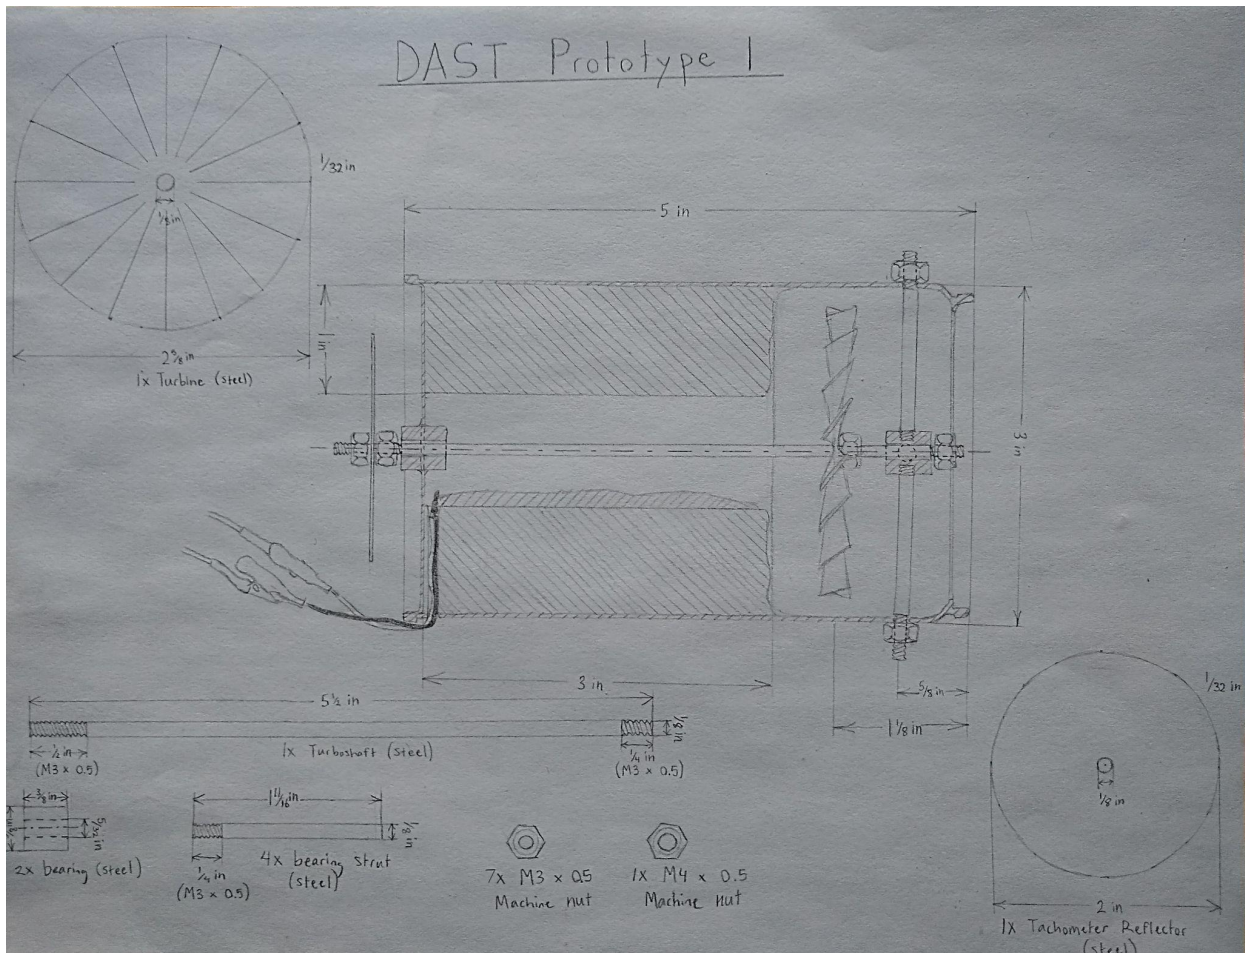 DAST Prototype 1
1/32 in
1/8 in
2 5/8 in
1x Turbine (steel)
5 in
1 in
3 in
3 in
5/8 in
1 1/8 in
5 1/2 in
1/8 in
1x Turboshaft (steel)
1/2 in
(M3 x 0.5)
1/4 in
(M3 x 0.5)
3/8 in
5/32 in
2x bearing (steel)
1 11/16 in
1/8 in
1/4 in
(M3 x 0.5)
4x bearing strut
(steel)
7x M3 x 0.5
Machine nut
1x M4 x 0.5
Machine nut
1/32 in
1/8 in
2 in
1x Tachometer Reflector
(steel)